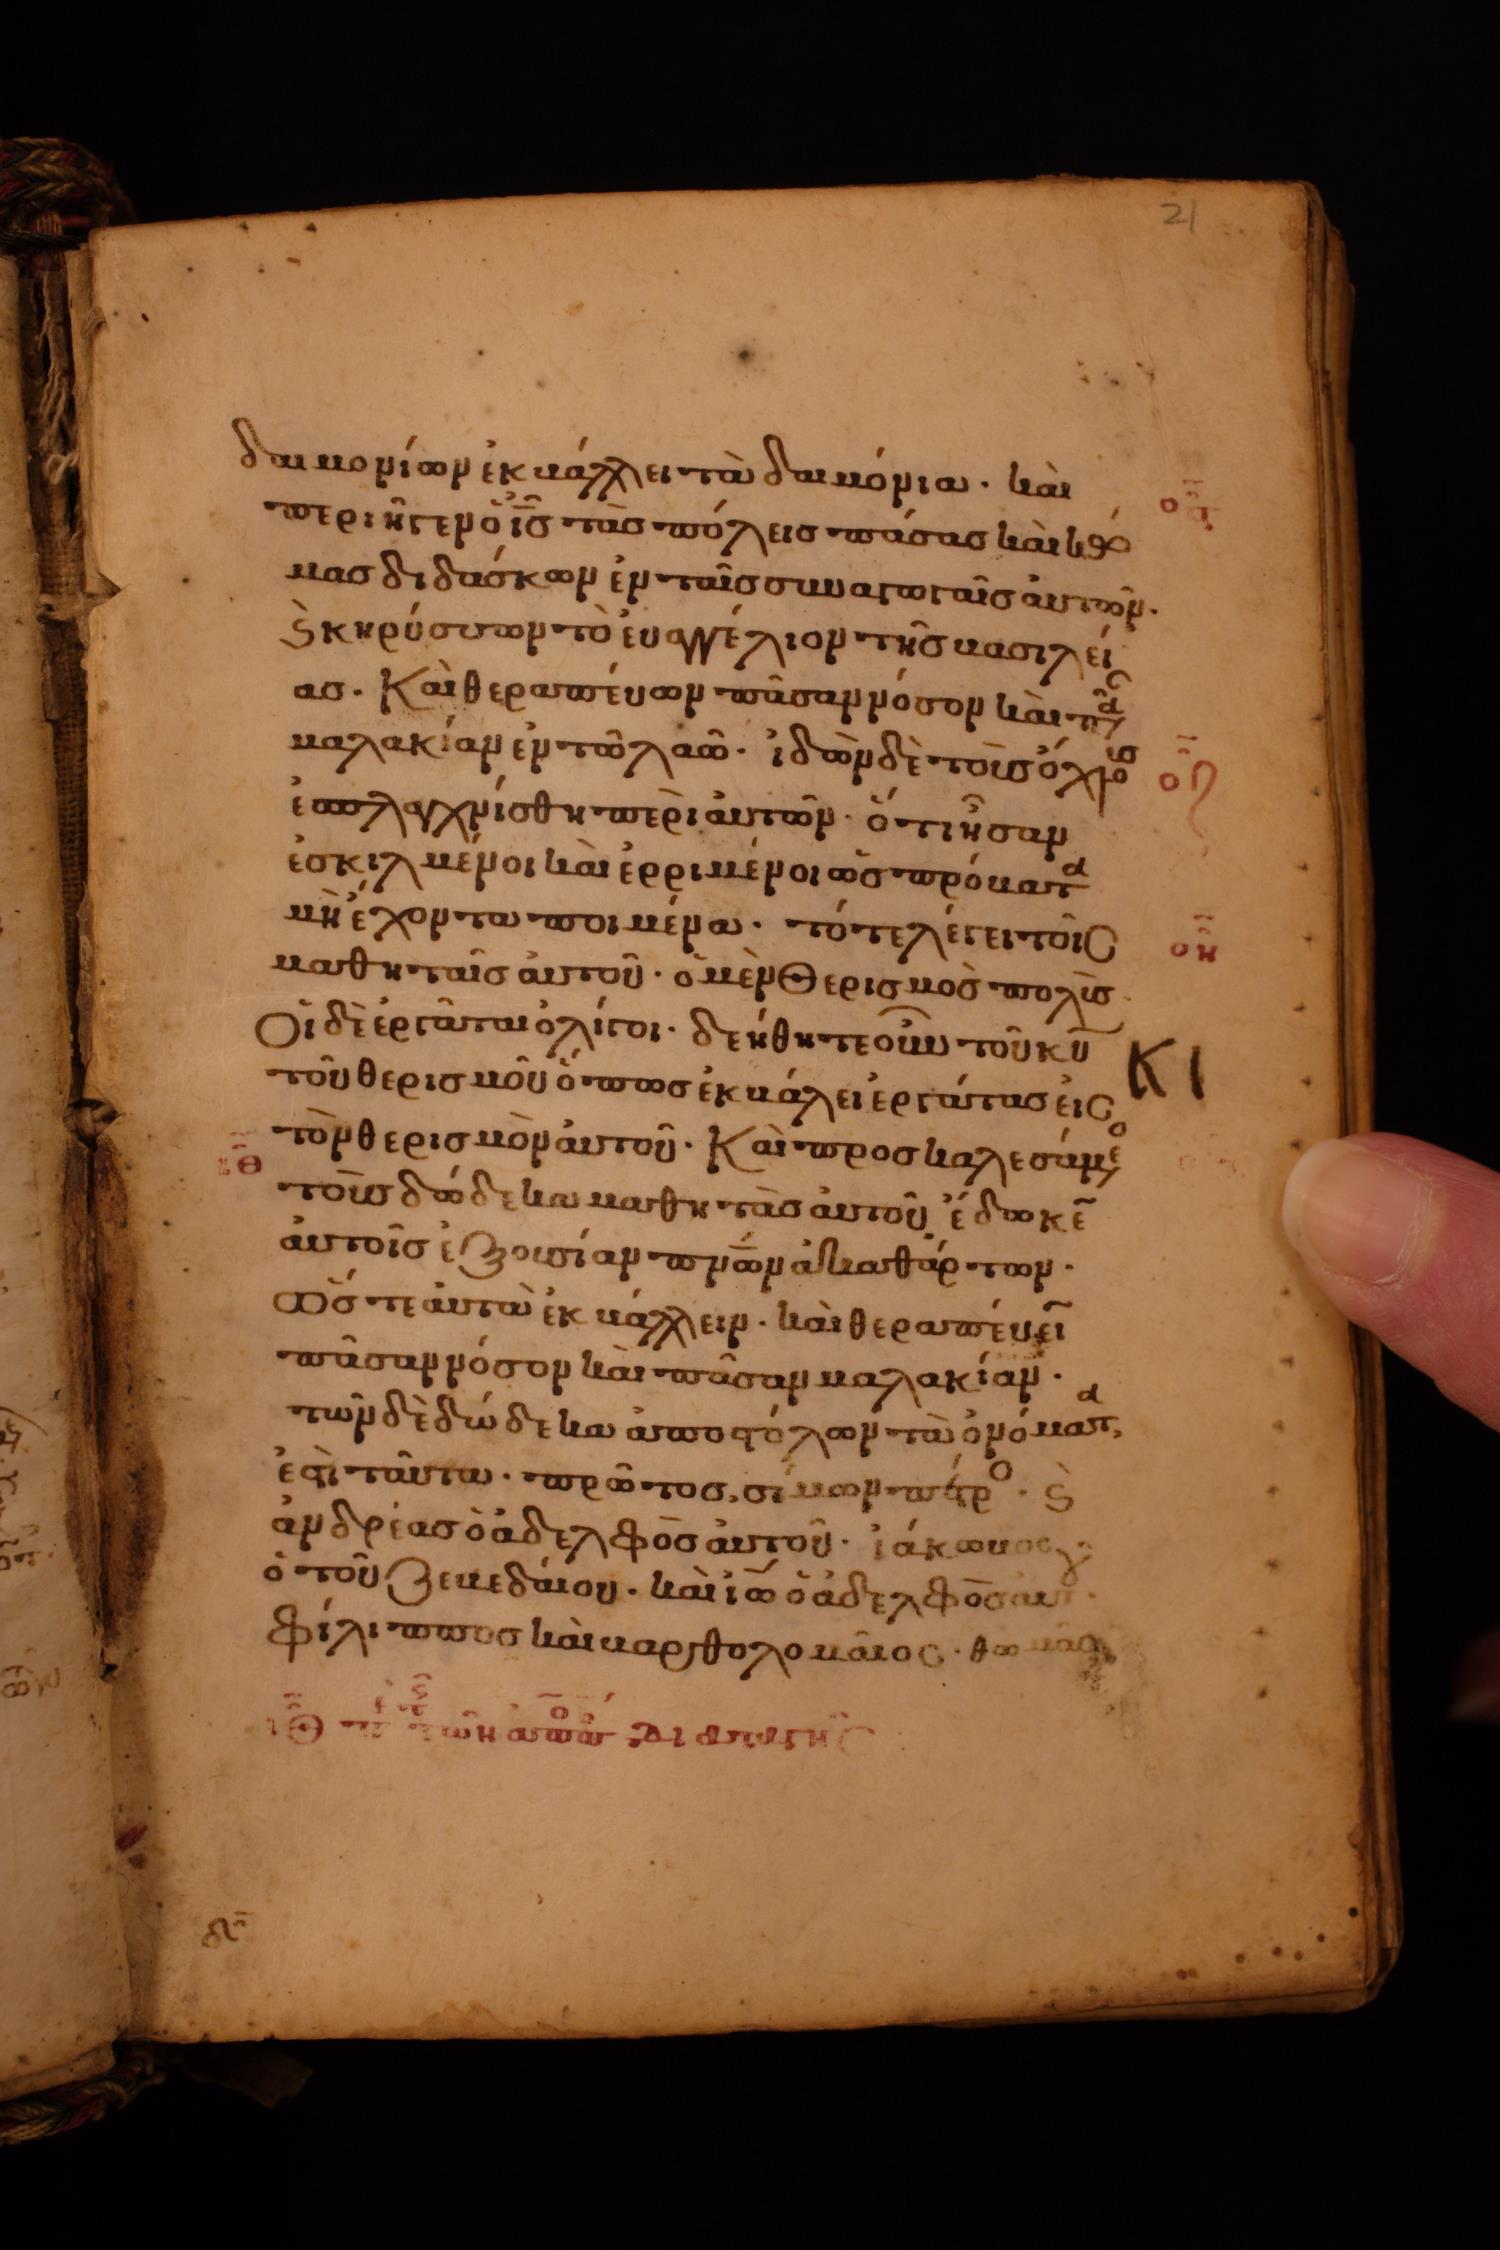 21
δαιμονίων ἐκβάλλει τὰ δαιμόνια · καὶ
περιῆγεν ὁ ἰ̅ς̅ τὰς πόλεις πάσας καὶ κώ
μας διδάσκων ἐν ταῖς συναγωγαῖς ἀυτῶν ·
ϗ̀ κηρύσσων τὸ ἐυαγγέλιον τῆς βασιλεί
ας · Καὶ θεραπέυων πᾶσαν νόσον καὶ πᾶ
μαλακίαν ἐν τῶ λαῶ · ἰδὼν δὲ τοὺς ὄχλους
ἐσπλαγχνίσθη περὶ ἀυτῶν · ὅτι ἦσαν
ἐσκιλμένοι καὶ ἐρριμένοι ὡς πρόβατα
μὴ ἔχοντα ποιμένα · τότε λέγει τοῖς
μαθηταῖς ἀυτοῦ · ὁ μὲν θερισμὸς πολὺς
Οἱ δὲ ἐργᾶται ὀλίγοι · δεήθητε οὖν τοῦ κ̅υ̅
ΚΙ
τοῦ θερισμοῦ ὅπως ἐκβάλει ἐργάτας εἰς
τὸν θερισμὸν ἀυτοῦ · Καὶ προσκαλεσάμενο
ιθ
τοὺς δώδεκα μαθητὰς ἀυτοῦ ἔδωκε̅
ἀυτοῖς ἐξουσίαν π̅ν̅ω̅ν ἀκαθάρτων ·
ὥστε ἀυτὰ ἐκβάλλειν · καὶ θεραπέυει̅
πᾶσαν νόσον καὶ πᾶσαν μαλακίαν ·
τῶν δὲ δώδεκα ἀποστόλων τὰ ὀνόματα,
ἐστὶ ταῦτα · πρῶτος, σίμων πέτρο · ϗ̀
ἀνδρέας ὁ ἀδελφὸς ἀυτοῦ · ἰάκωβος
ὁ τοῦ ζεβεδάιου · καὶ ἰ̅ω̅ ὁ ἀδελφὸς ἀυτ ·
φίλιππος καὶ βαρθολομᾶιος · θωμᾶς